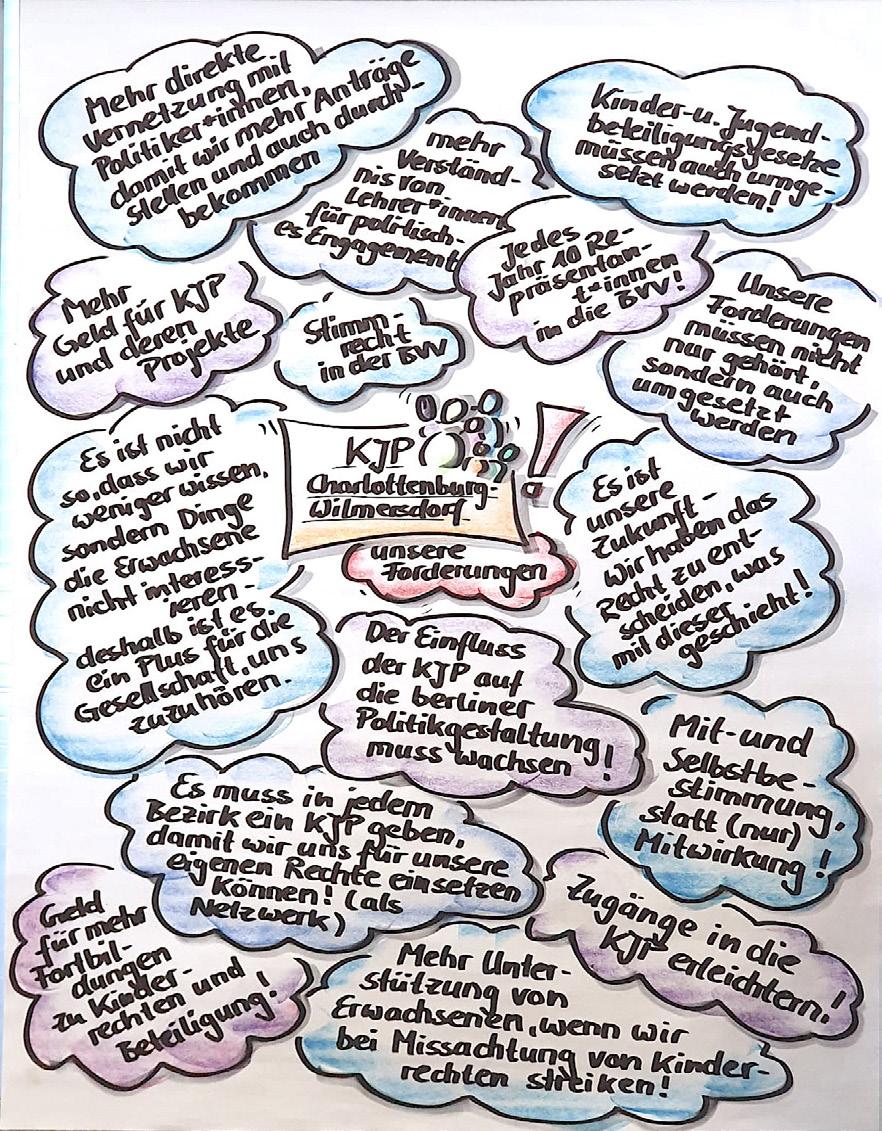 Mehr direkte
Vernetzung mit
Politiker*innen,
damit wir mehr Anträge
stellen und auch durch-
bekommen
Kinder-u. Jugend-
beteiligungsgesetze
müssen auch umge-
setzt werden!
mehr
Verständ-
nis von
Lehrer*innen
für politisch-
es Engagement
Jedes
Jahr 10 Re-
präsentan-
t*innen
in die BVV!
Mehr
Geld für KJP
und deren
Projekte
Stimm-
recht
in der BVV
Unsere
Forderungen
müssen nicht
nur gehört,
sondern auch
umgesetzt
werden
KJP
Charlottenburg-
Wilmersdorf
!
unsere
Forderungen
Es ist nicht
so, dass wir
weniger wissen,
sondern Dinge
die Erwachsene
nicht interess-
ieren -
deshalb ist es
ein Plus für die
Gesellschaft, uns
zuzuhören.
Es ist
unsere
Zukunft -
Wir haben das
Recht zu ent-
scheiden, was
mit dieser
geschieht!
Der Einfluss
der KJP auf
die berliner
Politikgestaltung
muss wachsen!
Mit- und
Selbstbe-
stimmung,
statt (nur)
Mitwirkung!
Es muss in jedem
Bezirk ein KJP geben,
damit wir uns für unsere
eigenen Rechte einsetzen
können! (als
Netzwerk)
Zugänge in die
KJP erleichtern!
Geld
für mehr
Fortbil-
dungen
zu Kinder-
rechten und
Beteiligung!
Mehr Unter-
stützung von
Erwachsenen, wenn wir
bei Missachtung von Kinder-
rechten streiken!